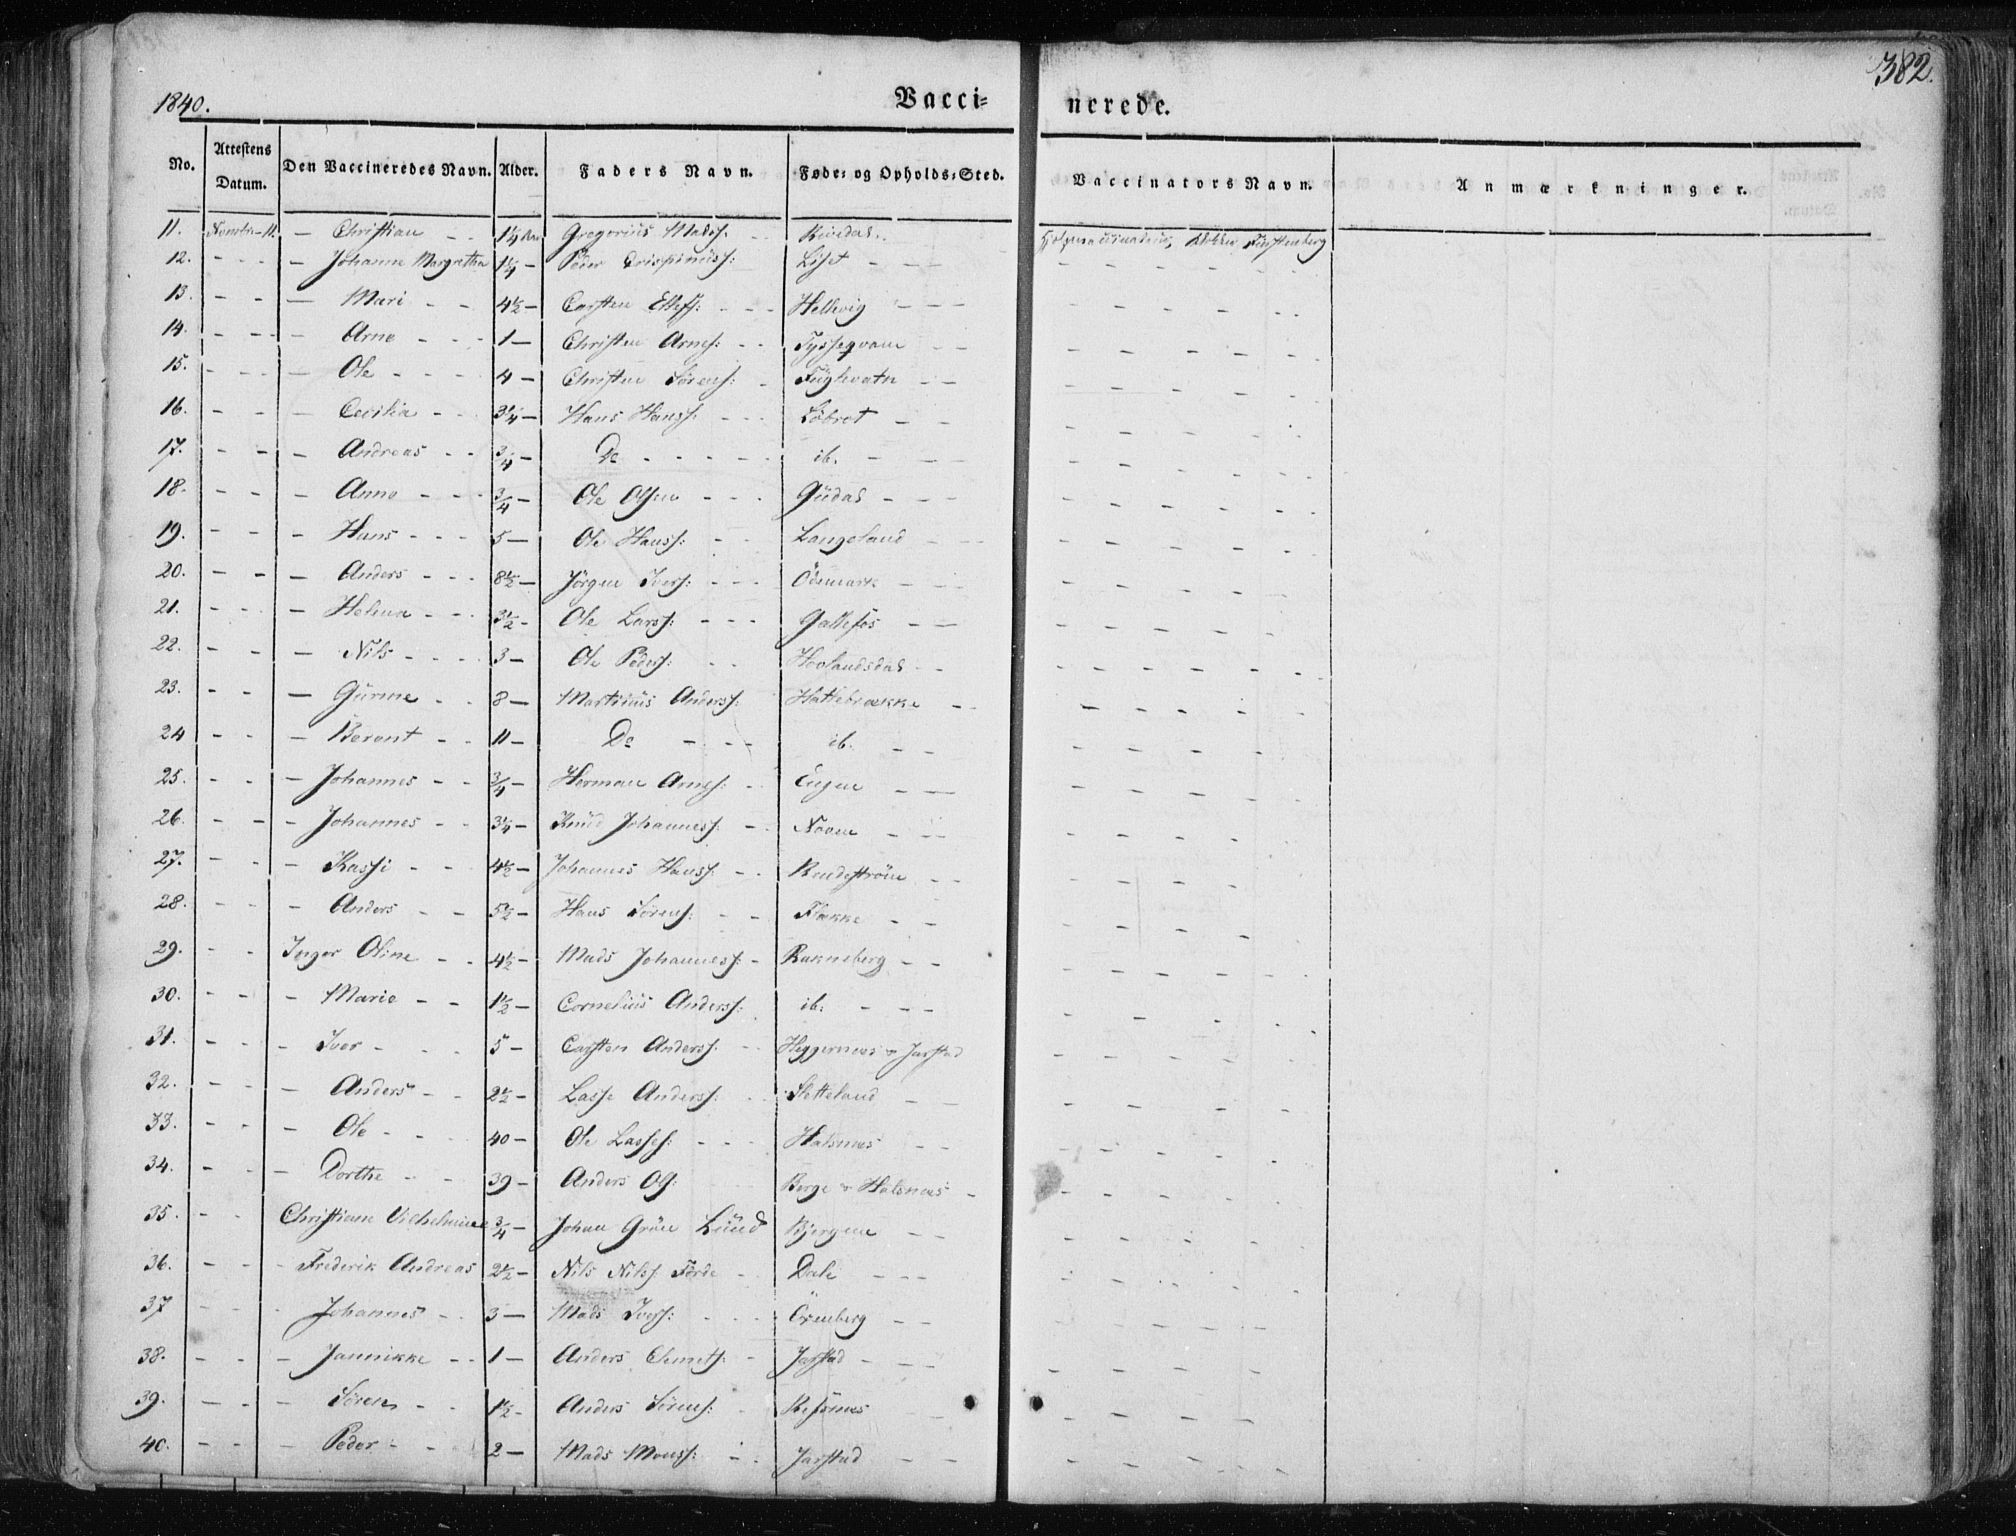 382.
1840.
Vacci= nerede.
No. Attestens Datum. Den Vaccineredes Navn. Alder. Faders Navn. Føde= og Opholds=Sted. Vaccinators Navn. Anmærkninger.
11. - Christian - - 1¼ Gregorius Madss: - -
12. - - - - Johanne Margrethe 1¼ - Peder Crispinúss: Liset - -
13. - - - Mari - - 4½ - Carsten Ellefs: - - - Hellevig - - -
14. - - - - Arne - - - 1 - Christen Arnes: - - Tysseqvam - -
15. - - - - Ole - - - - 4 - Christen Sørens: - Fúglevatn - -
16. - - - Cecilia - - - 3¼ - Hans Hanss: - - Løbret - -
17. - - - Andreas - - ¾ - Do - - - - - ib. - - -
18. - - - Anne - - - ¾ - Ole Olsen - - - Gúdal - - -
19. - - - Hans - - - 5 - Ole Hanss: - - Langeland - - -
20. - - - Anders - - - 8½ - Jørgen Ivers: - - - Ødemark - - -
21. - - - Helena - - - 3½ - Ole Larss: - - - Gallefos - -
22. - - - Nils - - - - 3 - Ole Peders: - - Hovlandsdal - -
23. - - - Gúrine - - 8 - Martinús Anderss: Hattebrække - -
24 - - - Berent - - 11 - Do - - - - ib. - -
25. - - - Johannes - - ¾ - Herman Arnes: - Engen - -
26. - - - Johannes - - 3¼ - Knúd Johanness: - - Noven - - -
27. - - - Kassi - - - 4½ - Johannes Hanss: - - Rendestrøm - -
28. - - Anders - - 5½ - Hans Sørens: - - Flække - -
29. - - Inger Oline - - 4½ - Mads Johanness: - Rakneberg - -
30. - - - Marie - - 1½ - Cornelius Anderss: ib. - - -
31. - - - Iver - - - 5 - Carsten Anderss: - - Heggernæs & Jarstad
32. - - - Anders - - 2½ - Lasse Anderss: - - Sletteland - -
33. - - - Ole - - - 40 - Ole Lasses: - - - Halsnæs - -
34. - - - Dorthe - - - 39 - Anders Ols: - Berge & Halsnæs -
35. - - Christiane Vilhelmine ¾ - Johan Grøn Lúnd Bjergene - -
36. - - - Frederik Andreas 2½ - Nils Nilss: Førde - Dale - - -
37 - - - Johannes - - 3 - Mads Ivers: - - - - Øxenberg - -
38. - - - Jannikke - - 1 - Anders Clemets: - Jarstad - - -
39. - - - Søren - - 1½ - Anders Sørens: - Refsnæs
40. - - - Peder - - 2 - Mads Monss: - - Jarstad - -